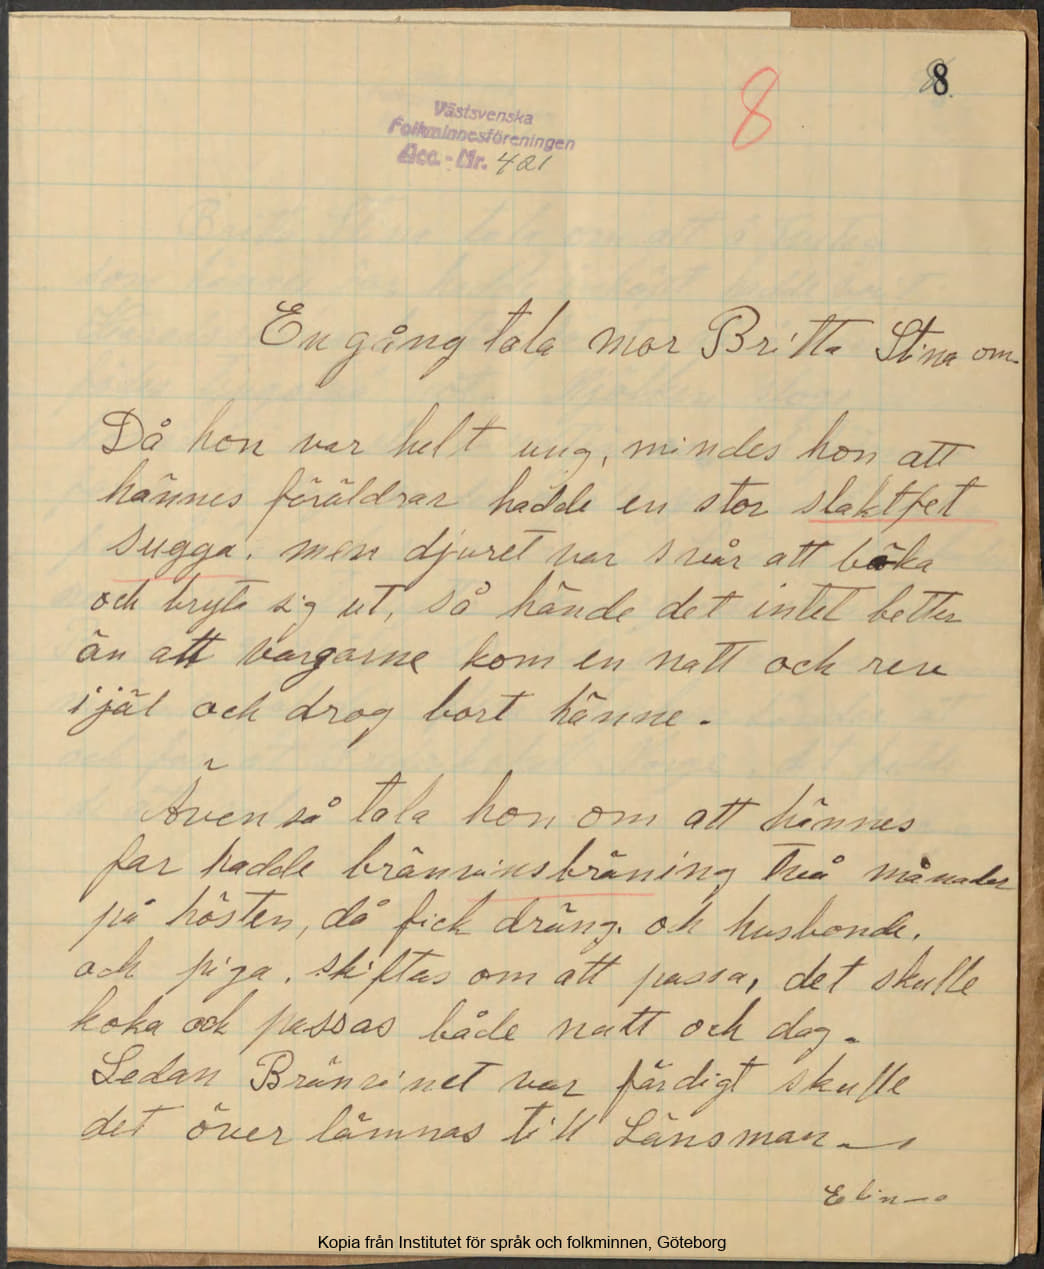 8
8.
Västsvenska
Folkminnesföreningen
Acc.-Nr. 421
En gång tala mor Britta Stina om.
Då hon var helt ung, mindes hon att
hännes föräldrar hadde en stor slaktfet
sugga. men djuret var svår att böka
och bryta sig ut, så hände det intet better
än att vargarne kom en natt och rev
ijäl och drog bort hänne.
Även så tala hon om att hännes
far hadde bränvinsbräning två månader
på hösten, då fick dräng. och husbonde.
och piga. skiftas om att passa, det skulle
koka och passas både natt och dag.
Sedan Bränvinet var färdigt skulle
det över lämnas till Länsman
Kopia från Institutet för språk och folkminnen, Göteborg